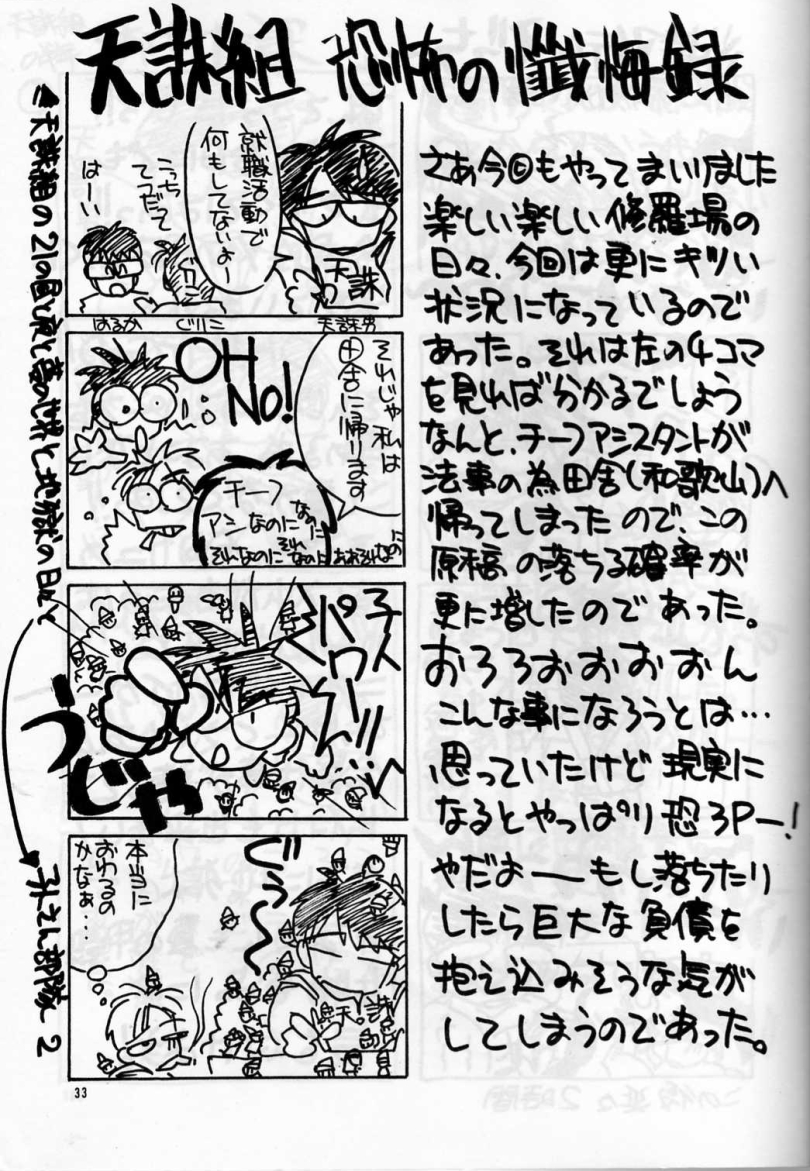 天誅組 恐怖の懺悔録
さあ今回もやってまいりました
楽しい楽しい修羅場の
日々、今回は更にキツい
状況になっているので
あった。それは左の4コマ
を見れば分かるでしょう
なんと、チーフアシスタントが
法事の為田舎(和歌山)へ
帰ってしまったので、この
原稿の落ちる確率が
更に増したのであった。
おろろおおおおん
こんな事になろうとは…
思っていたけど現実に
なるとやっぱり恐ろPー!
やだよーもし落ちたり
したら巨大な負債を
抱え込みそうな気が
してしまうのであった。
就職活動で
何もしてないよー
こっち
てつだって
はーい
天誅
はるか
ぐりこ
天誅男
それじゃ私は
田舎に帰ります
OH
NO!
チーフ
アシなのに
なのに
それなのに
それ
なのに
ああそれなのに
うじゃ
ぐぅ〜
本当に
おわるの
かなぁ…
33